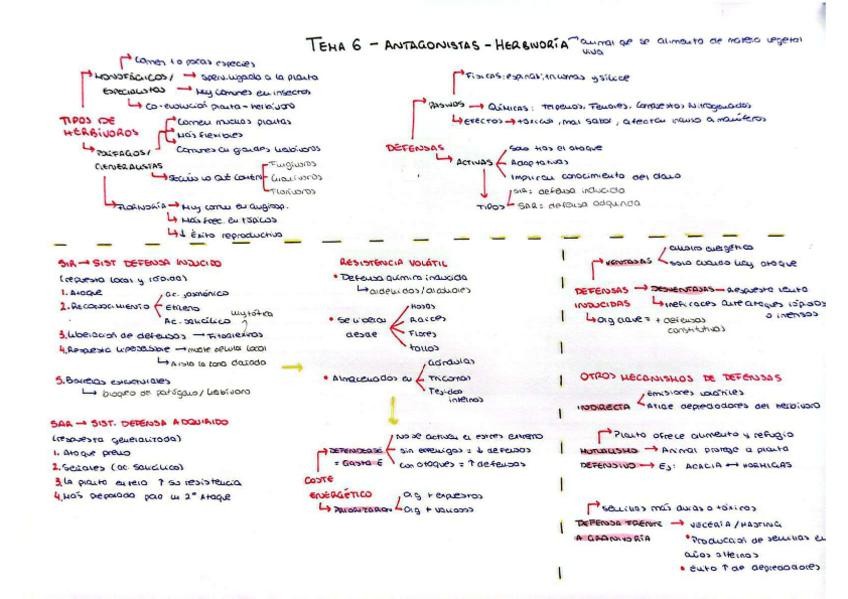 TEMA 6 - ANTAGONISTAS - HERBIVORÍA → animal que se alimenta de materia vegetal viva
TIPOS DE HERBÍVOROS
MONOFÁGICOS/ ESPECIALISTAS
Comen 1 o pocas especies
ligado a la planta
Muy comunes en insectos
Co-evolución planta-herbívoro
POLÍFAGOS/ GENERALISTAS
Comen muchas plantas
Más flexibles
Comunes en grandes herbívoros
Según lo que comen
Frugívoros
Granívoros
Florívoros
FLORIVORÍA → Muy común en angiosp.
Más frec. en trópicos
↓ éxito reproductivo
DEFENSAS
PASIVAS
Físicas: espinas, tricomas y sílice
QUÍMICAS: Terpenos, Fenoles, Compuestos Nitrogenados
EFECTOS → tóxicos, mal sabor, afectan incluso a mamíferos
ACTIVAS
Solo tras el ataque
Adaptativas
Implican conocimiento del daño
TIPOS
SIR: defensa inducida
SAR: defensa adquirida
SIR → SIST DEFENSA INDUCIDO
(respuesta local y rápida)
1. Ataque
2. Reconocimiento
Ac. jasmónico
Etileno
Ac. salicílico
3. Liberación de defensas → Fitoalexinas
4. Respuesta hipersensible → muerte celular local
Aísla la zona dañada
5. Barreras estructurales
bloqueo de patógeno/herbívoro
SAR → SIST. DEFENSA ADQUIRIDO
(respuesta generalizada)
1. Ataque previo
2. Señales (ac. salicílico)
3. La planta entera ↑ su resistencia
4. Más preparada para un 2º ataque
RESISTENCIA VOLÁTIL
• Defensa química inducida
aldehídos/alcoholes
• Se liberan desde
Hojas
Raíces
Flores
tallos
• Almacenados en
Glándulas
Tricomas
Tejidos internos
COSTE ENERGÉTICO
DEFENDERSE = GASTA E
No se activan si estrés externo
sin enemigos = ↓ defensas
con ataques = ↑ defensas
PRIORIZACIÓN
Org + expuestos
Org + valiosos
DEFENSAS INDUCIDAS
VENTAJAS
ahorro energético
solo cuando hay ataque
DESVENTAJAS → Respuesta lenta
ineficaces ante ataques rápidos o intensos
Org clave = + defensas constitutivas
OTROS MECANISMOS DE DEFENSAS
INDIRECTA
emisiones volátiles
Atrae depredadores del herbívoro
MUTUALISMO DEFENSIVO
Planta ofrece alimento y refugio
Animal protege a planta
Ej: ACACIA ↔ HORMIGAS
DEFENSA FRENTE A GRANIVORÍA
Semillas más duras o tóxicas
VECERÍA/MASTING
• Producción de semillas en años alternos
• evita ↑ de depredadores